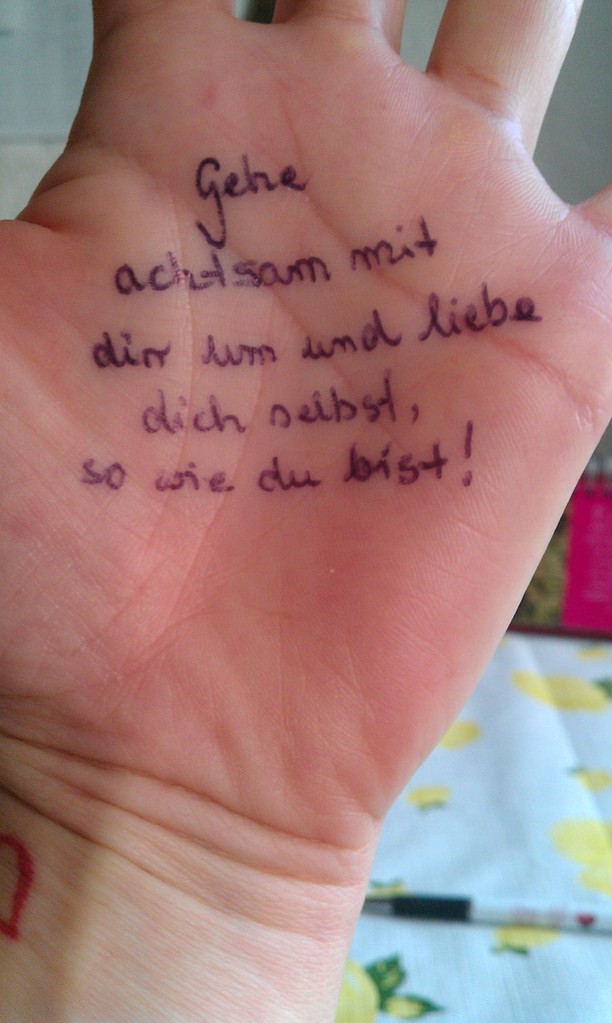 Gehe
achtsam mit
dir um und liebe
dich selbst,
so wie du bist!